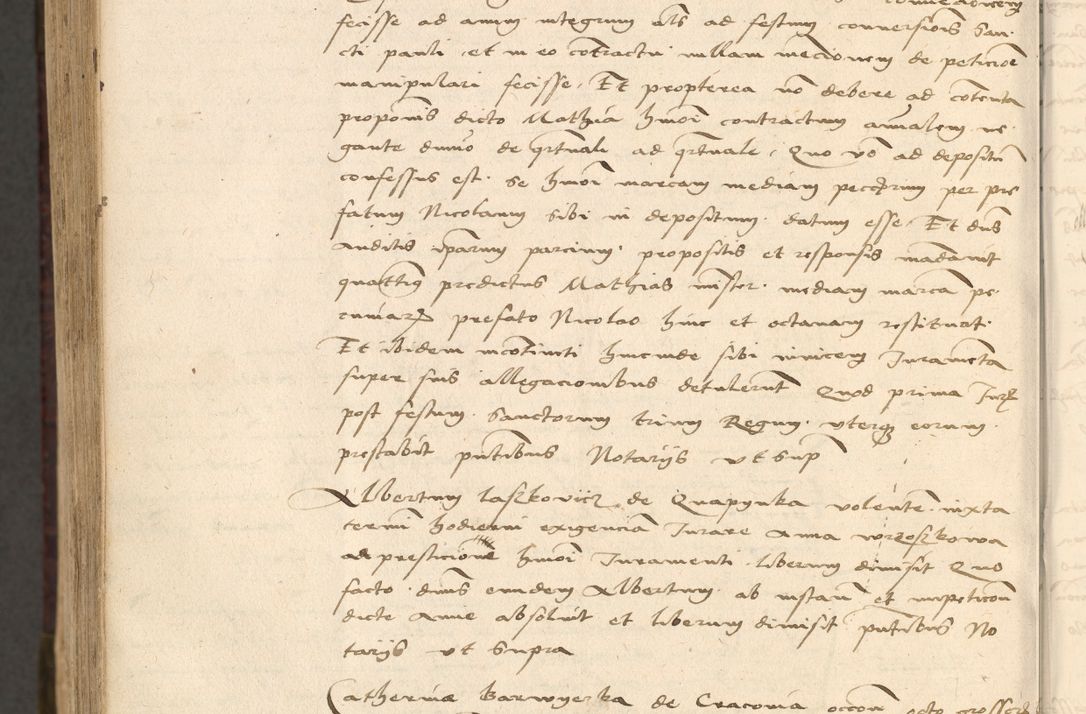 fecisse ad annum integrum als ad festum conversionis San
cti pauli et in eo cotractu nullam mecionem de peticioe
manipulari fecisse, Et propterea no debere ad cotenta
proponis dicto Mathia hmoi contractum anualem ne
gante divuo de qrtuali ad qrtuale, Quo vo ad depositu
confessus est se hmoi marcam mediam peccorum per pre
fatum Nicolaum sibi in depositum datum esse, Et dns
Auditis iparum parcium propositis et responsis madavit
quatting predictus Mathias mister mediam marca pe
cuniar prefato Nicolao hinc et octavam restituat
Et ibidem incotineti hincinde sibi invicem Juramenta
super suis allegacionibus detulerut Quod prima Jur
post festum Sanctorum trium Regum uterq eorum
prestabit pntibus Notarijs ut Sup
Albertum laszkovicz de Quapynka volente iuxta
termi hodierni exigencia Jurare Anna wrzoszkowa
ad presticione hmoi Juramenti liberum dimisit Quo
facto dnus eundem Albertum ab instan et impeticon
dicte Anne absolvit et liberum dimisit pntibus No
tarijs ut Supra
Catherina Barwyerka de Cracovia occon octo grossor